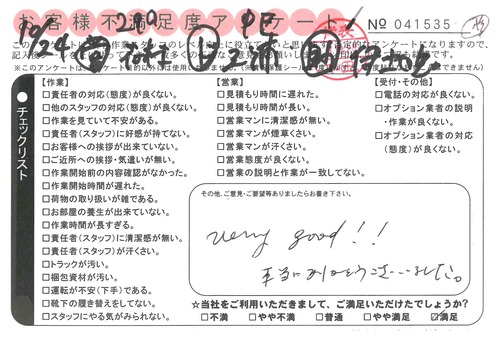 お客様不満足度アンケート
№ 041535
【作業】
□責任者の対応(態度)が良くない。
□他のスタッフの対応(態度)が良くない。
□作業を見ていて不安がある。
□責任者(スタッフ)に好感が持てない。
□お客様への挨拶が出来ていない。
□ご近所への挨拶・気遣いが無い。
□作業開始前の内容確認がなかった。
□作業開始時間が遅れた。
□荷物の取り扱いが雑である。
□お部屋の養生が出来ていない。
□作業時間が長すぎる。
□責任者(スタッフ)に清潔感が無い。
□責任者(スタッフ)が汗くさい。
□トラックが汚い。
□梱包資材が汚い。
□運転が不安(下手)である。
□靴下の履き替えをしてない。
□スタッフにやる気がみられない。
【営業】
□見積もり時間に遅れた。
□見積もり時間が長い。
□営業マンに清潔感が無い。
□営業マンが煙草くさい。
□営業マンが汗くさい。
□営業態度が良くない。
□営業の説明と作業が一致してない。
【受付・その他】
□電話の対応が良くない。
□オプション業者の説明
・作業が良くない。
□オプション業者の対応
(態度)が良くない。
チェックリスト
その他、ご意見・ご要望等ありましたらお書き下さい。
very good!!
本当にありがとうございました。
☆当社をご利用いただきまして、ご満足いただけたでしょうか?
□不満 □やや不満 □普通 □やや満足 ☑満足